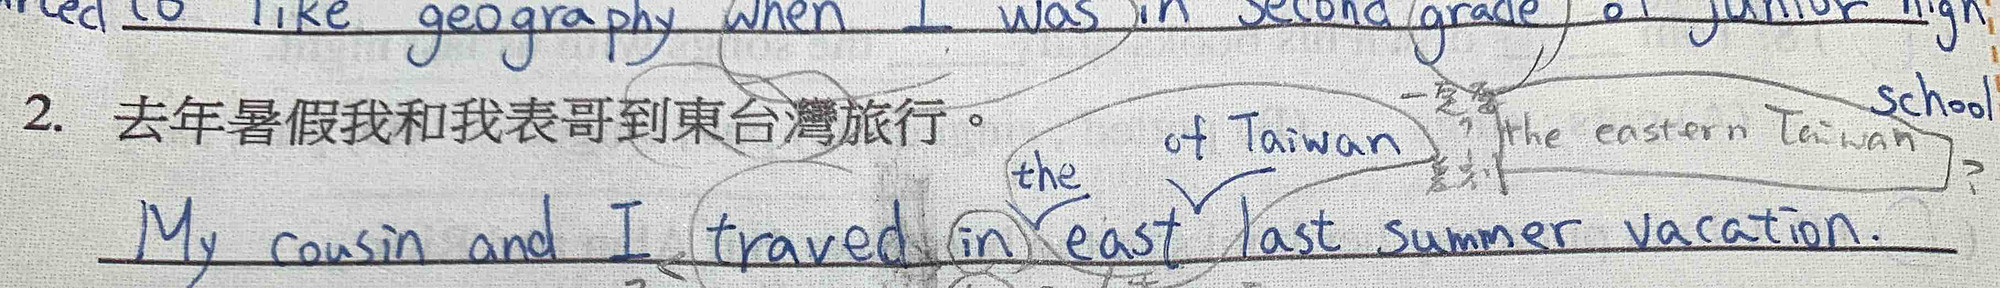 to like geography when I was in second grade of junior high
school
2. 去年暑假我和我表哥到東台灣旅行。
the of Taiwan
the eastern Taiwan ?
差別
My cousin and I traved in east last summer vacation.